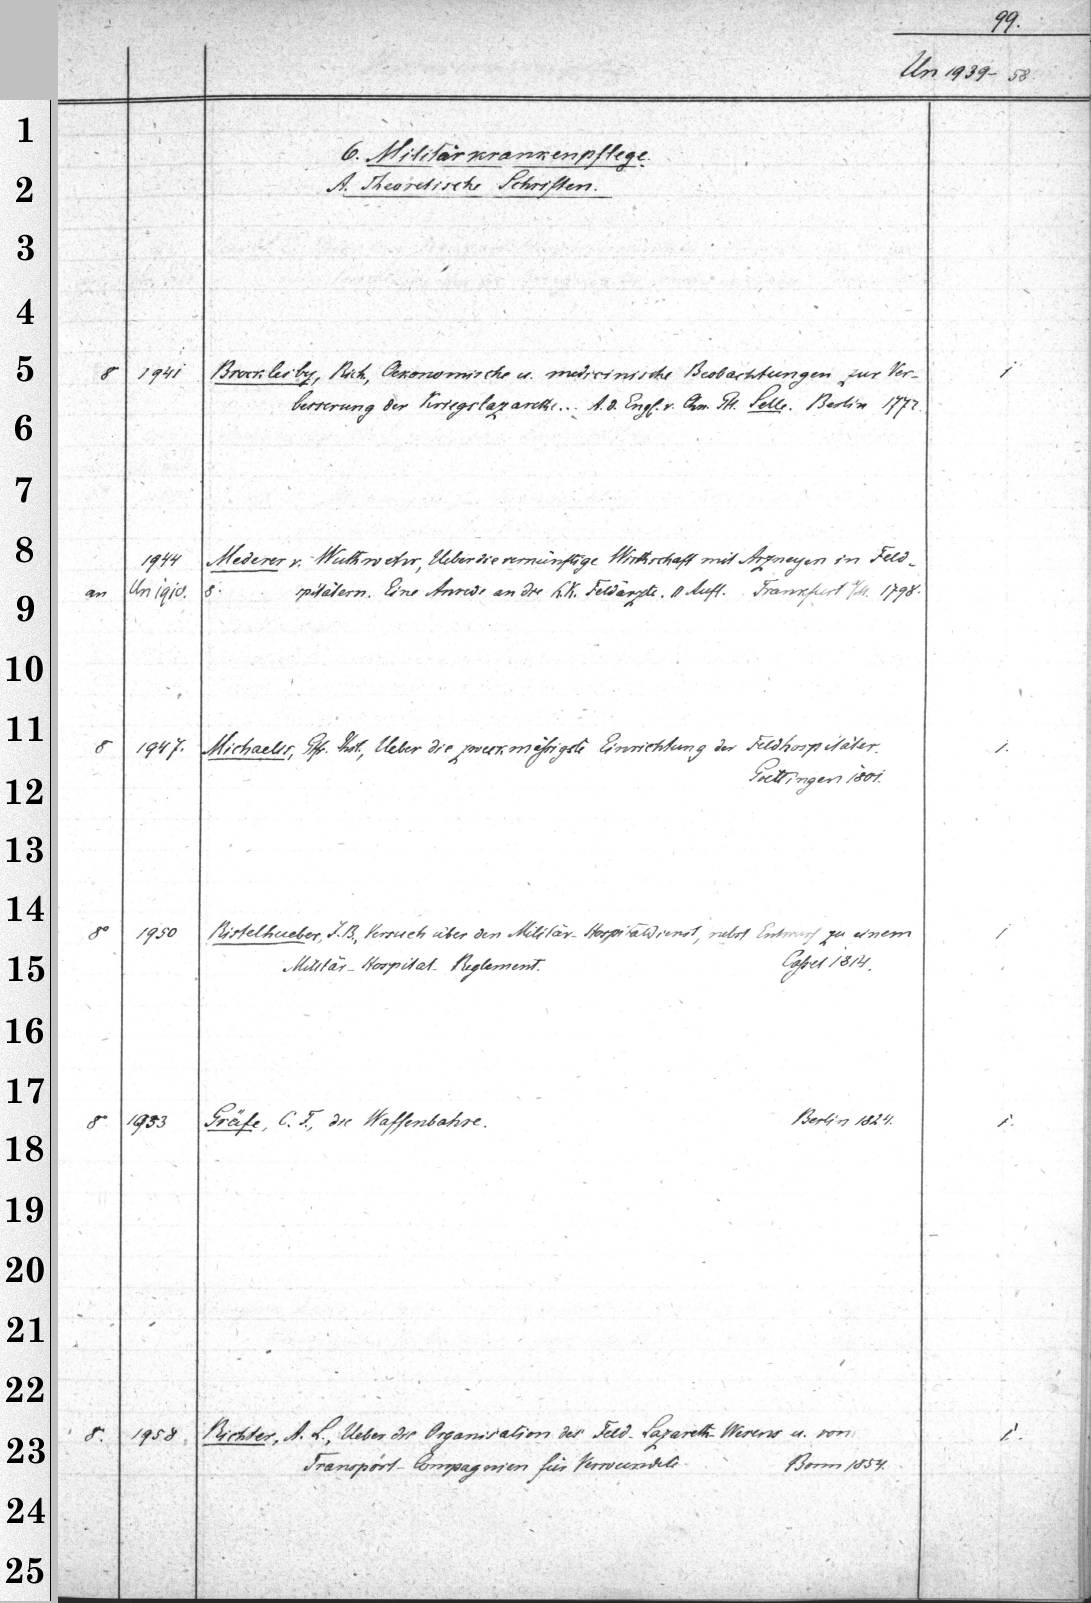 99.
Un 1939-58
6. Militärkrankenpflege.
A. Theoretische Schriften.
8 1941 Brocklesby, Rich., Oekonomische u. medicinische Beobachtungen zur Ver- 1
besserung der Kriegslazarethe... A. d. Engl. v. Chn. Th. Selle. Berlin 1772.
1944 Mederer v. Wuthwehr, Ueber die vernünftige Wirthschaft mit Arzneyen in Feld-
an Un 1910. 8. spitälern. Eine Anrede an die k.k. Feldärzte. II Aufl. Frankfurt a/M. 1798.
8 1947. Michaelis, Gfr. Phil., Ueber die zweckmäßigste Einrichtung der Feldhospitäler. 1.
Goettingen 1801.
8° 1950 Ristelhueber, J. B., Versuch über den Militär-Hospitaldienst, nebst Entwurf zu einem 1
Militär-Hospital-Reglement. Caßel 1814.
8 1953 Gräfe, C. F., die Waffenbahre. Berlin 1824. 1.
8. 1958 Richter, A. L., Ueber die Organisation des Feld-Lazareth-Wesens u. von 1.
Transport-Compagnien für Verwundete Bonn 1854.
1
2
3
4
5
6
7
8
9
10
11
12
13
14
15
16
17
18
19
20
21
22
23
24
25